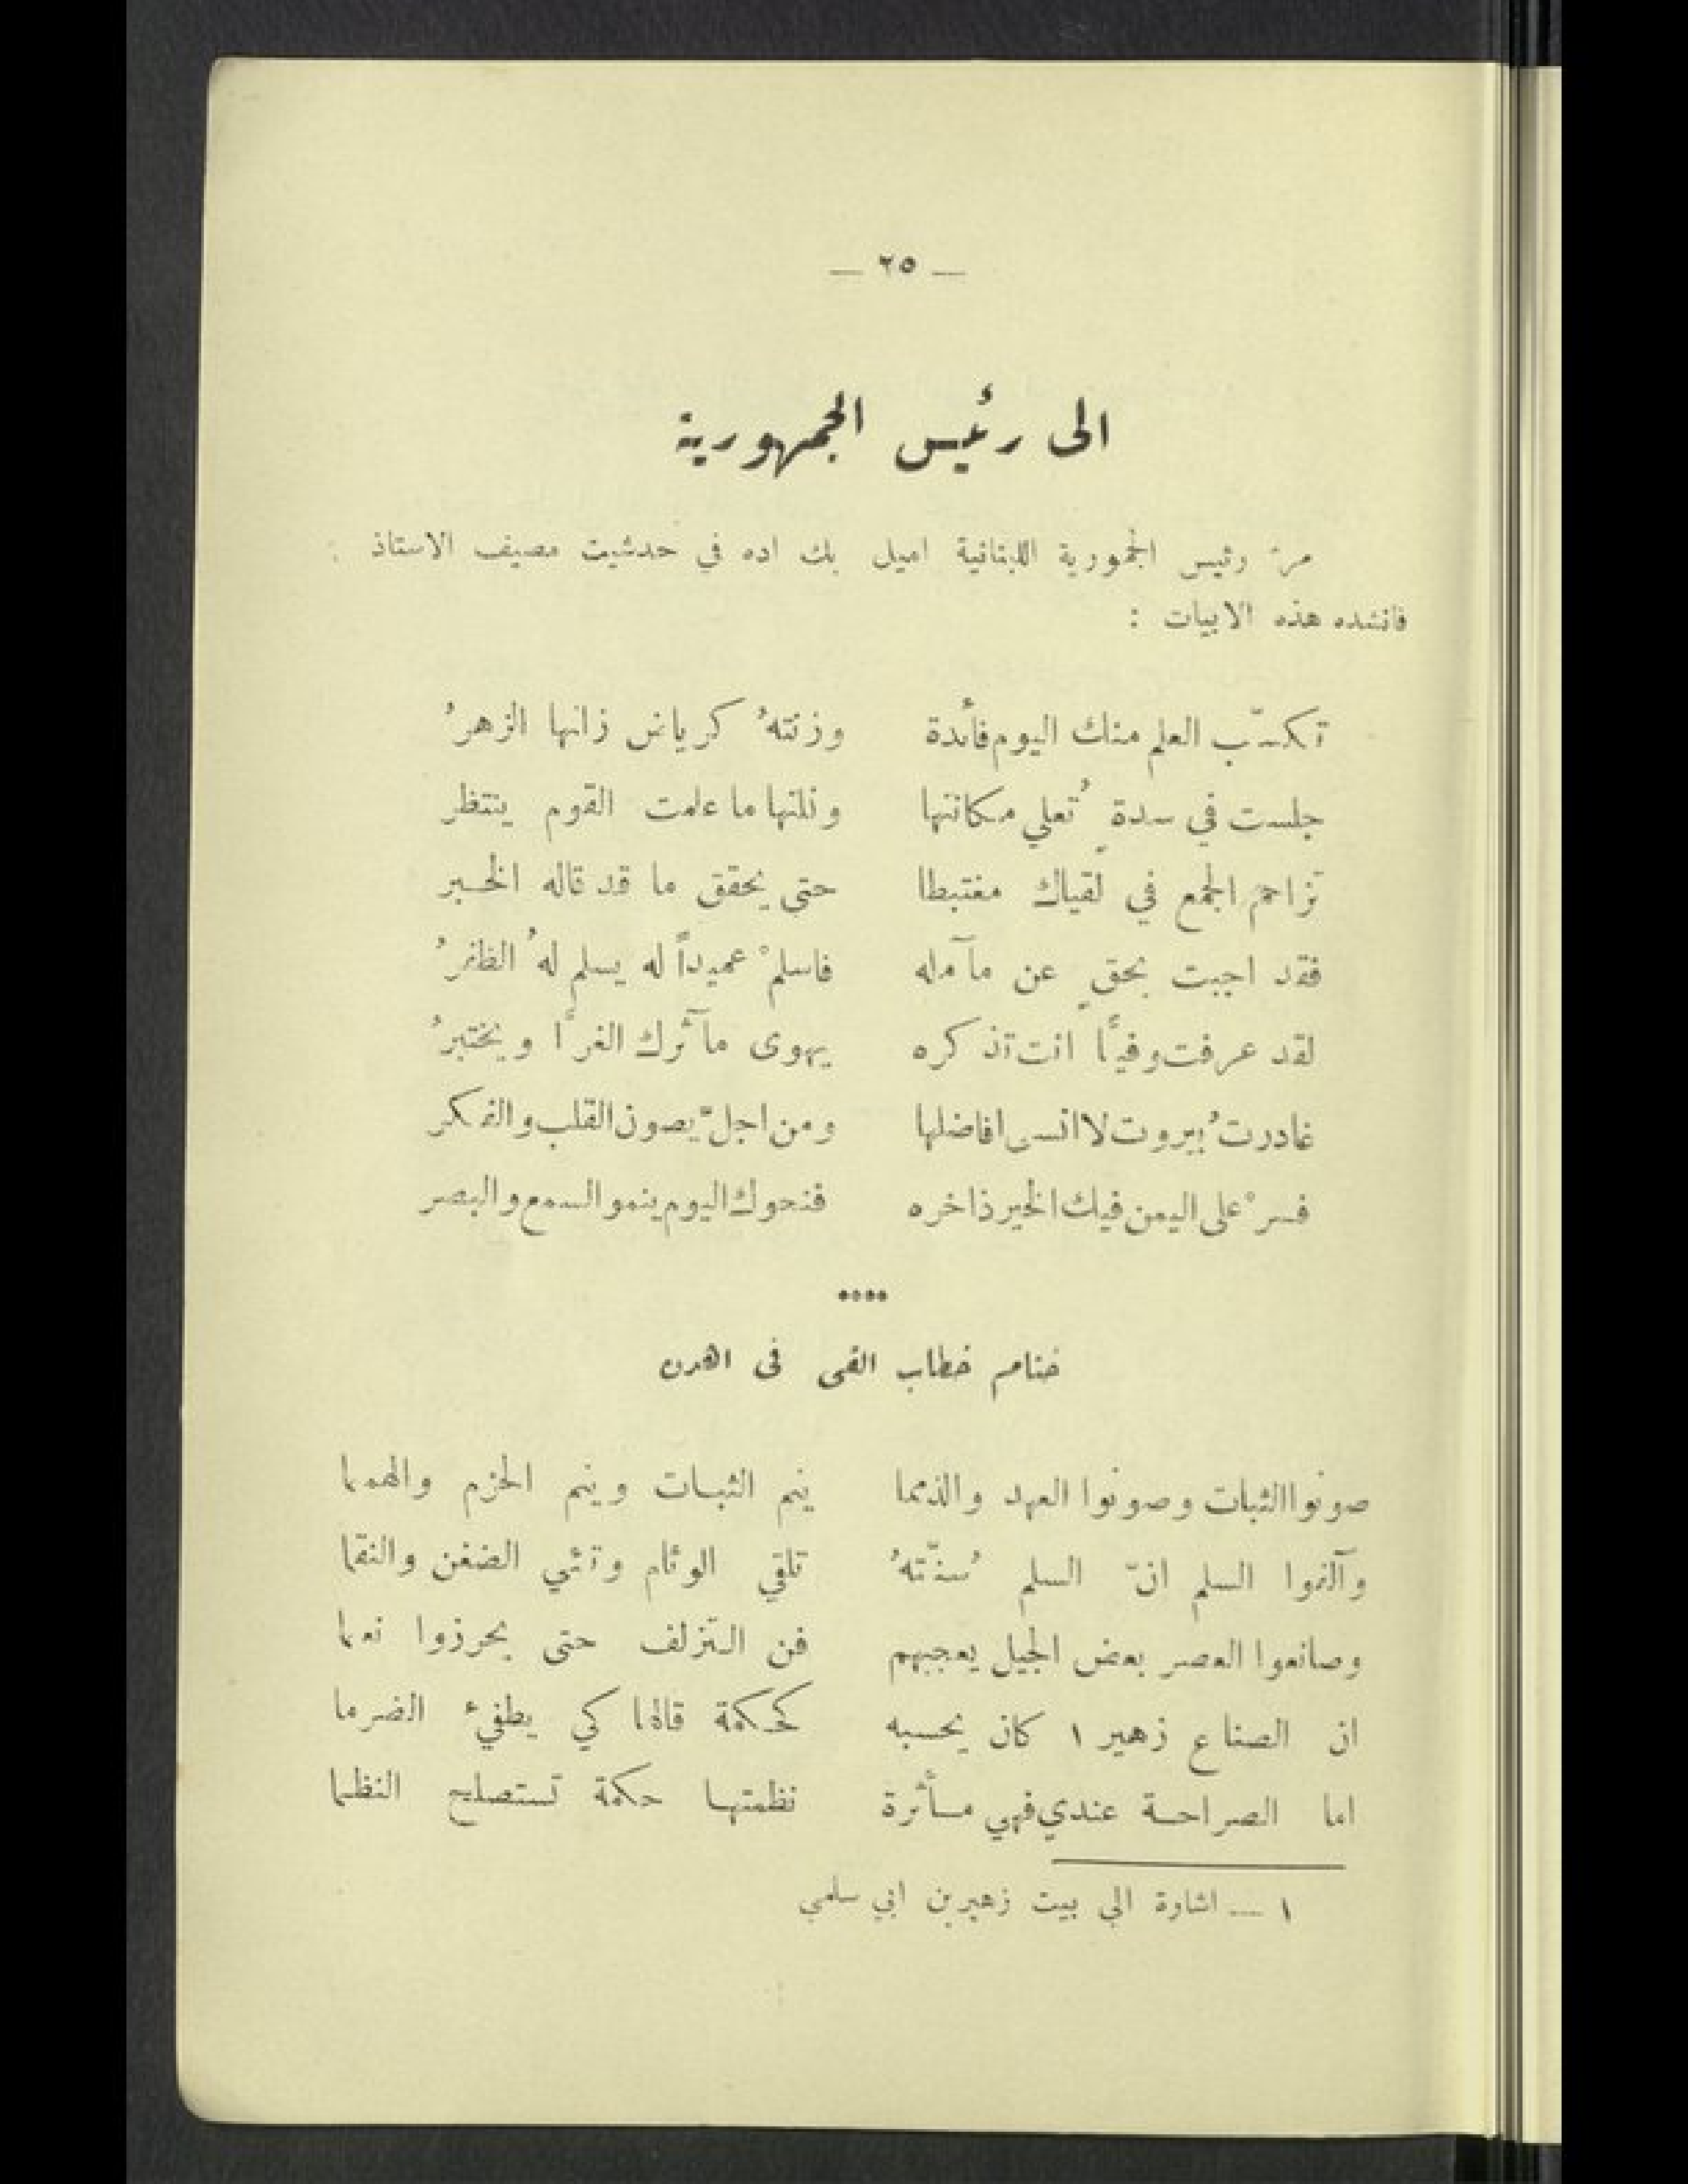 — ٢٥ —
الى رئيس الجمهورية
مرّ رئيس الجمهورية اللبنانية اميل بك اده في حدشيت مصيف الاستاذ
فانشده هذه الابيات :
تكسّب العلم منك اليوم فائدة وزنتهُ كرياض زانها الزهرُ
جلست في سدةٍ تُعلي مكانتها ونلتها ما علمت القوم ينتظر
تزاحم الجمع في لقياك مغتبطا حتى يحقق ما قد قاله الخبر
فقد اجبت بحقٍ عن مآمله فاسلمْ عميداً له يسلم لهُ الظفرُ
لقد عرفت وفيًا انت تذكره يهوى مآثرك الغرَّا ويختبرُ
غادرتُ بيروت لا انسى افاضلها ومن اجلّ يصون القلب والفكر
فسرْ على اليمن فيك الخير ذاخره فنحوك اليوم ينمو السمع والبصر
••••
ختام خطاب القي في اهدن
صونوا الثبات وصونوا العهد والذمما ينم الثبات وينم الحزم والهمما
وآلنموا السلم انّ السلم سُنّتهُ تلقي الوئام وتئي الضغن والنقما
وصانعوا العصر بعض الجيل يعجبهم فن التزلف حتى يحرزوا نعما
ان الصناع زهير ١ كان يحسبه كحكمة قالها كي يطفيء الضرما
اما الصراحة عندي فهي مأثرة نظمتها حكمة تستصلح النظما
١ — اشارة الى بيت زهير بن ابي سلمي